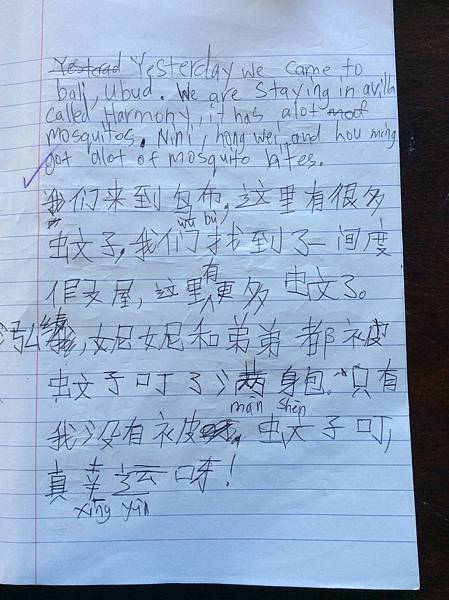 Yesterday we came to
bali, Ubud. We are staying in avilla
called Harmony, it has alot
mosquitos. Nini, hong wei, and hou ming
got alot of mosquito bites.
我们来到乌布,这里有很多
wū bù
蚊子,我们找到了一间度
假屋,这里有更多蚊子。
妮妮和弟弟都被
蚊子叮了满身包。只有
mǎn shēn
我没有被蚊子叮,
真幸运呀!
xìng yùn